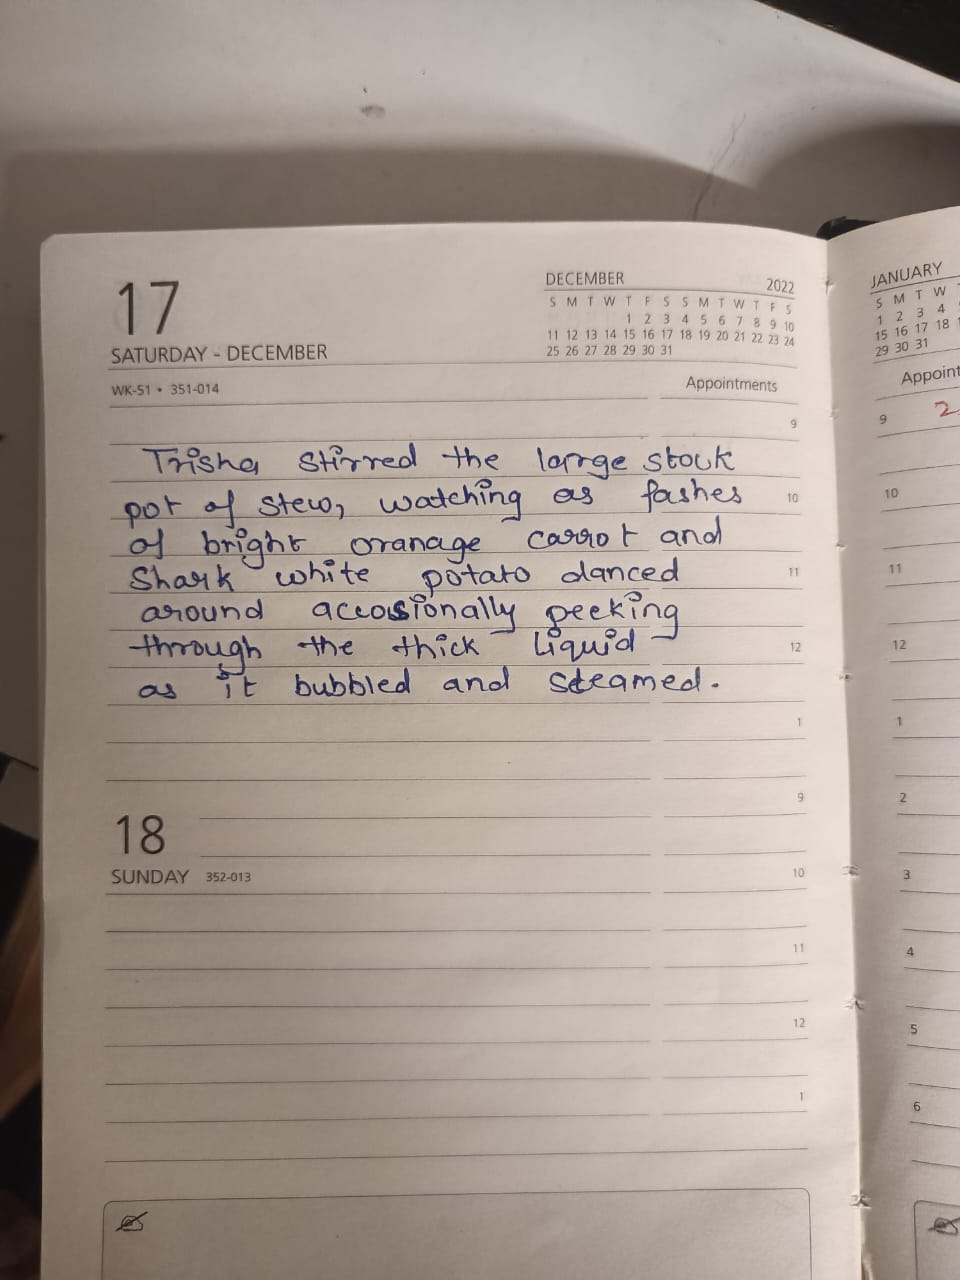 17
SATURDAY - DECEMBER
WK-51 • 351-014
DECEMBER 2022
S M T W T F S S M T W T F S
1 2 3 4 5 6 7 8 9 10
11 12 13 14 15 16 17 18 19 20 21 22 23 24
25 26 27 28 29 30 31
Appointments
9
Trisha stirred the large stock
pot of stew, watching as fashes
10
of bright oranage carrot and
Shark white potato danced
11
around accosionally peeking
through the thick liquid
12
as it bubbled and steamed.
1
18
SUNDAY 352-013
9
10
11
12
1
JANUARY
S M T W
1 2 3 4
15 16 17 18
29 30 31
Appoint
9 2
10
11
12
1
2
3
4
5
6